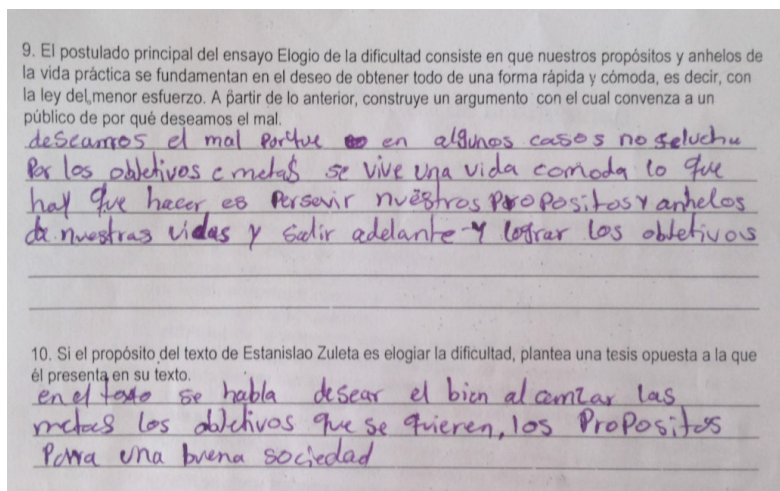 9. El postulado principal del ensayo Elogio de la dificultad consiste en que nuestros propósitos y anhelos de
la vida práctica se fundamentan en el deseo de obtener todo de una forma rápida y cómoda, es decir, con
la ley del menor esfuerzo. A partir de lo anterior, construye un argumento con el cual convenza a un
público de por qué deseamos el mal.
deseamos el mal porque en algunos casos no se lucha
Por los objetivos o metas se vive una vida comoda lo que
hay que hacer es Persevir nuestros propositos y anhelos
de nuestras vidas y salir adelante y lograr los objetivos
10. Si el propósito del texto de Estanislao Zuleta es elogiar la dificultad, plantea una tesis opuesta a la que
él presenta en su texto.
en el texto se habla desear el bien alcanzar las
metas los objetivos que se quieren, los Propositos
Para una buena sociedad